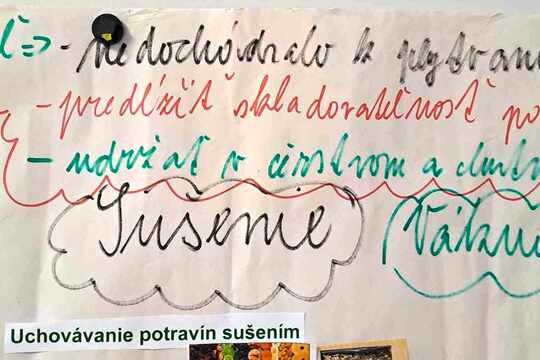 ľ => - nedochádzalo k plytvani
- predĺžiť skladovateľnosť po
- udržať v čerstvom a chutn
Sušenie
Váku
Uchovávanie potravín sušením